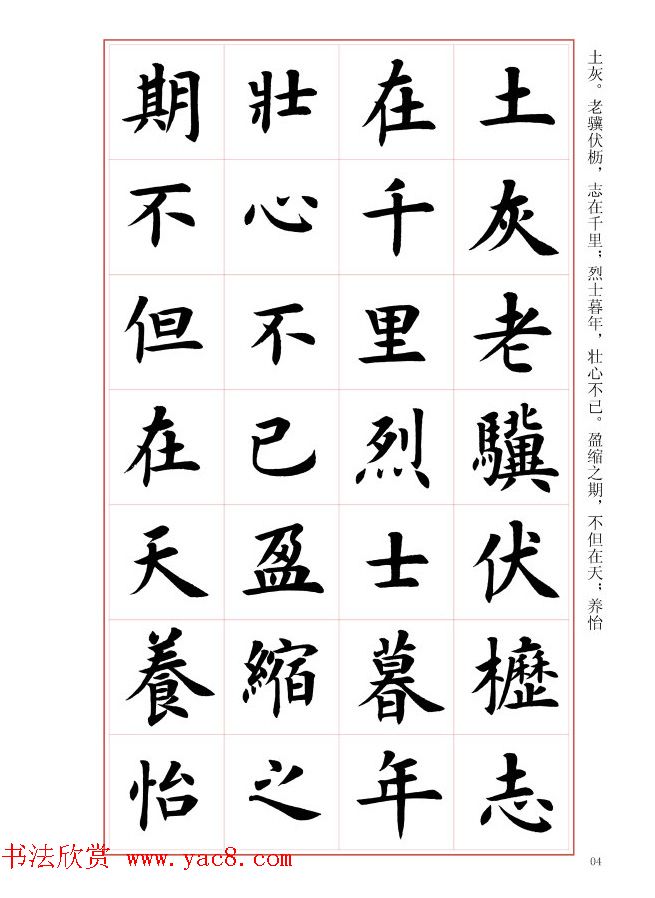 土灰老驥伏櫪志
在千里烈士暮年
壯心不已盈縮之
期不但在天養怡
土灰。老骥伏枥，志在千里；烈士暮年，壮心不已。盈缩之期，不但在天；养怡
书法欣赏 www.yac8.com
04